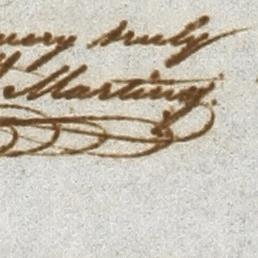 very truly
Martiny